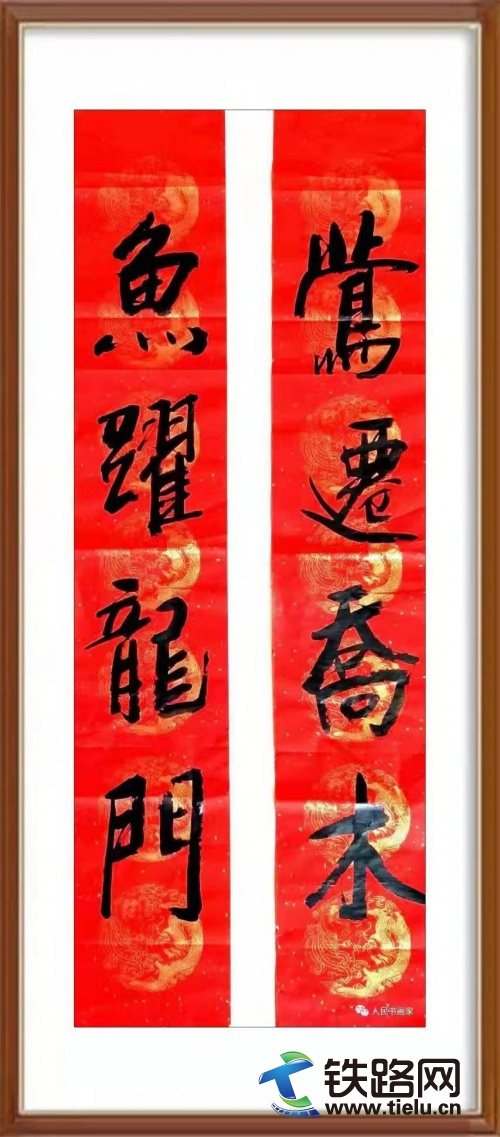 鶯遷喬木
魚躍龍門
人民书画家
铁路网
www.tielu.cn